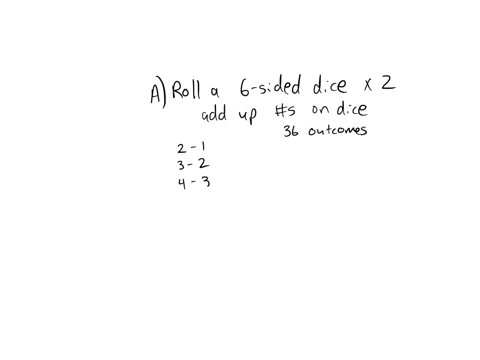 A) Roll a 6-sided dice x 2
add up #s on dice
36 outcomes
2 - 1
3 - 2
4 - 3